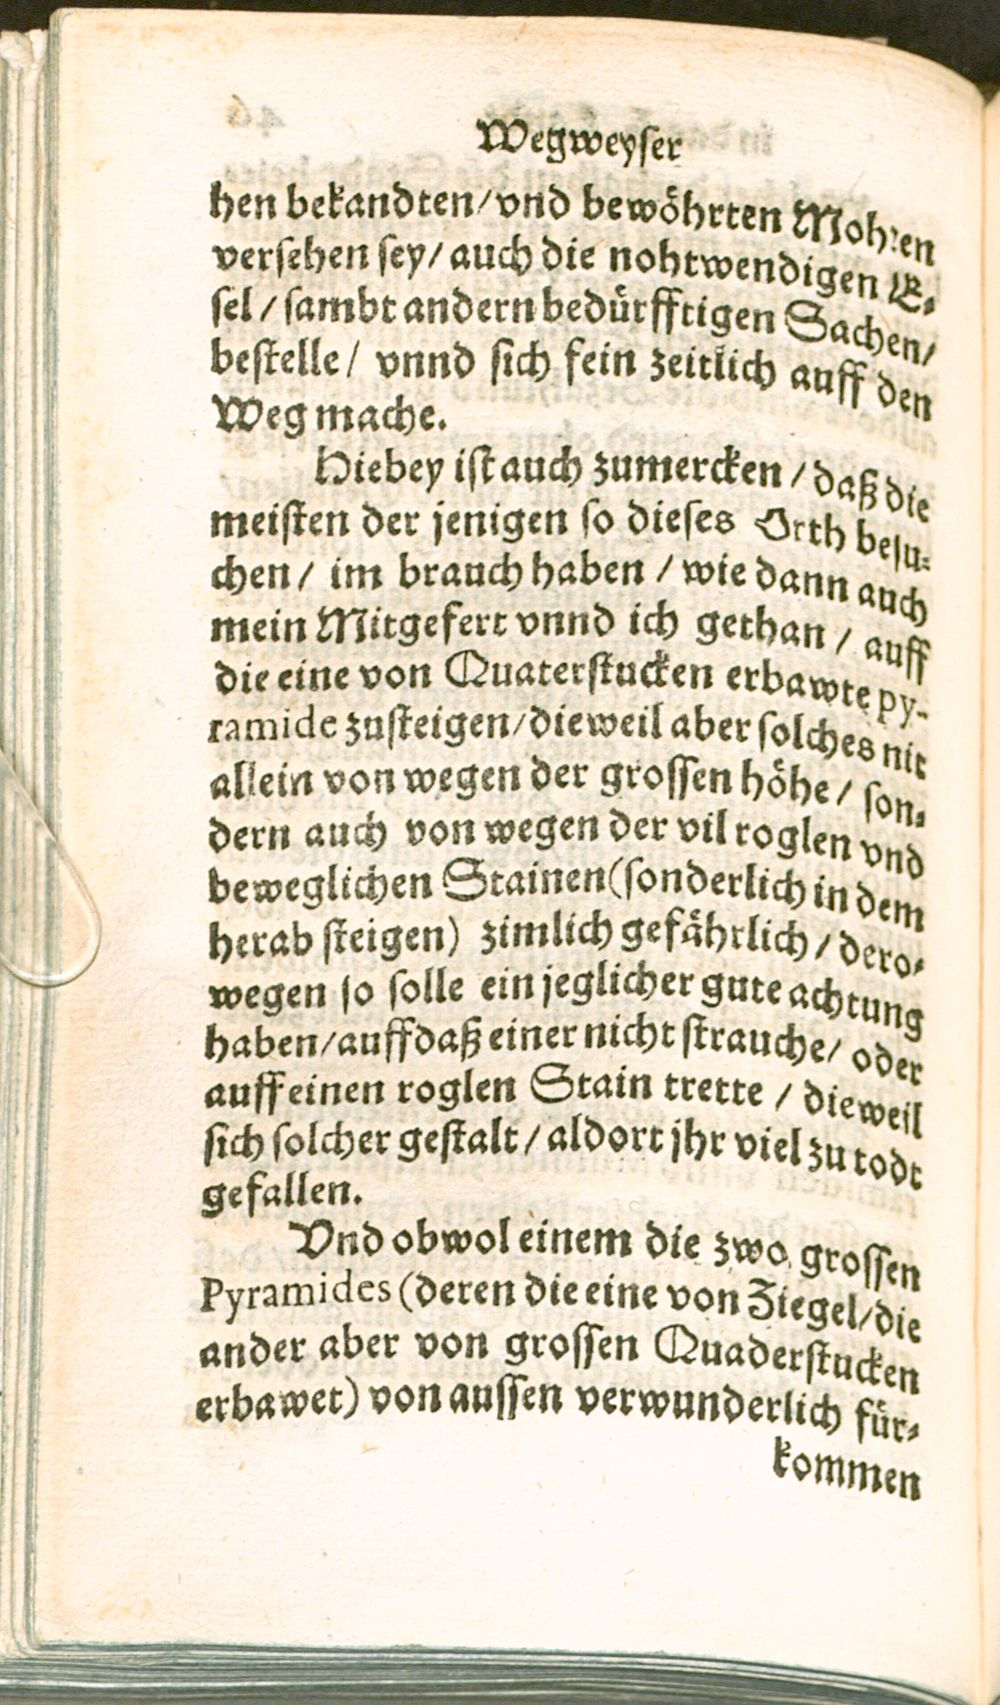 Wegweyser
hen bekandten/vnd bewöhrten Mohren
versehen sey/auch die nohtwendigen E-
sel/sambt andern bedürfftigen Sachen/
bestelle/ vnnd sich fein zeitlich auff den
Weg mache.
Hiebey ist auch zumercken/daß die
meisten der jenigen so dieses Orth besu-
chen/ im brauch haben/wie dann auch
mein Mitgefert vnnd ich gethan/auff
die eine von Quaterstucken erbawte py-
ramide zusteigen/dieweil aber solches nit
allein von wegen der grossen höhe/son-
dern auch von wegen der vil roglen vnd
beweglichen Stainen(sonderlich in dem
herab steigen) zimlich gefährlich/dero-
wegen so solle ein jeglicher gute achtung
haben/auff daß einer nicht strauche/oder
auff einen roglen Stain trette/dieweil
sich solcher gestalt/aldort jhr viel zu todt
gefallen.
Vnd obwol einem die zwo grossen
Pyramides (deren die eine von Ziegel/die
ander aber von grossen Quaderstucken
erbawet) von aussen verwunderlich für-
kommen